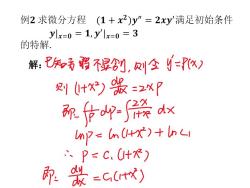 例2 求微分方程 (1 + x²)y″ = 2xy′满足初始条件
y|ₓ₌₀ = 1, y′|ₓ₌₀ = 3
的特解.
解:
则 (1+x²) dp/dx = 2xp
即 ∫ 1/p dp = ∫ 2x/(1+x²) dx
lnp = ln(1+x²) + ln c₁
∴ p = c₁(1+x²)
即: dy/dx = c₁(1+x²)